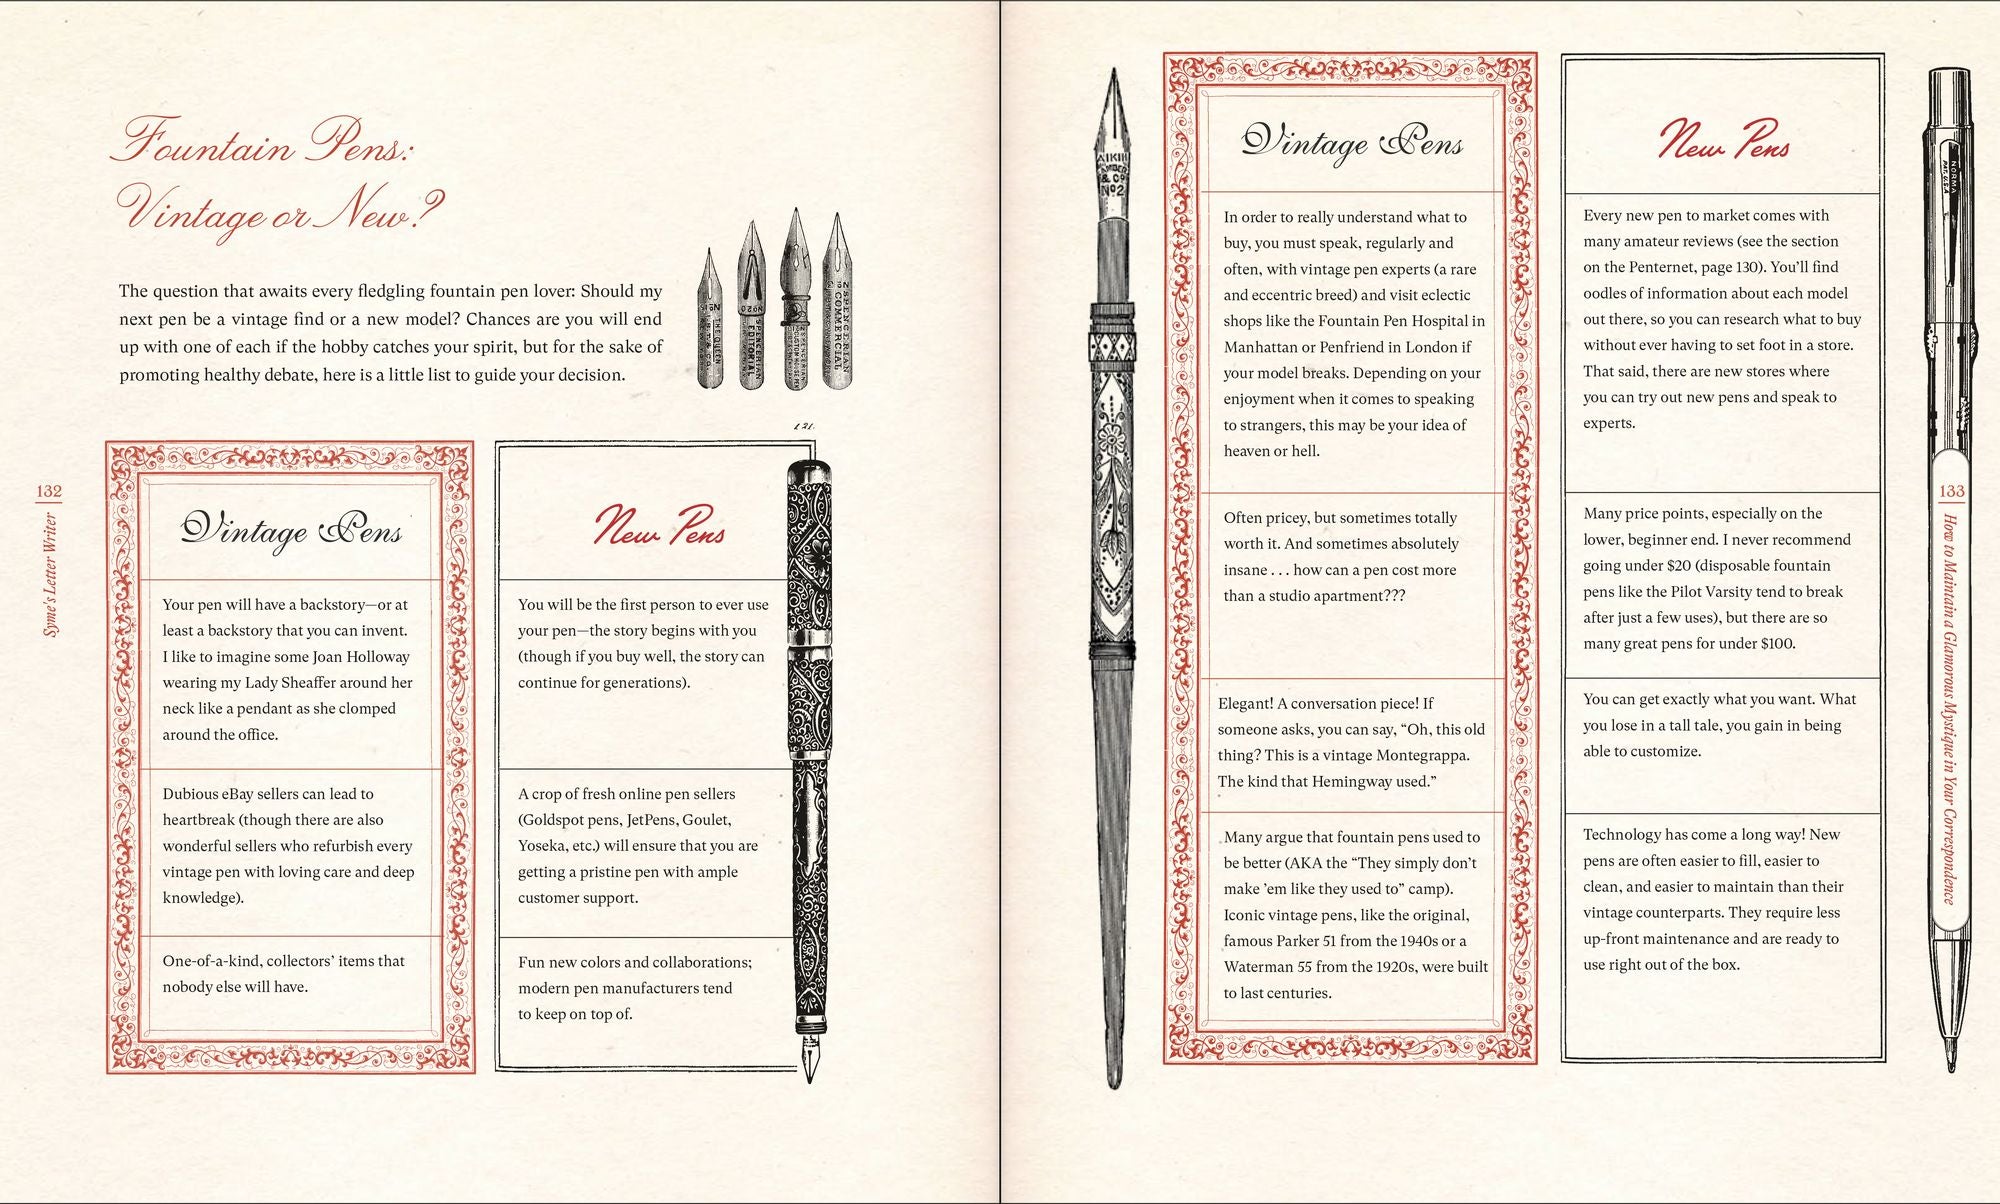 Fountain Pens:
Vintage or New?
The question that awaits every fledgling fountain pen lover: Should my
next pen be a vintage find or a new model? Chances are you will end
up with one of each if the hobby catches your spirit, but for the sake of
promoting healthy debate, here is a little list to guide your decision.
THE QUEEN
SPENCERIAN
EDITORIAL
SPENCERIAN
COMMERCIAL
121.
132
Syme's Letter Writer
Vintage Pens
Your pen will have a backstory—or at
least a backstory that you can invent.
I like to imagine some Joan Holloway
wearing my Lady Sheaffer around her
neck like a pendant as she clomped
around the office.
Dubious eBay sellers can lead to
heartbreak (though there are also
wonderful sellers who refurbish every
vintage pen with loving care and deep
knowledge).
One-of-a-kind, collectors’ items that
nobody else will have.
New Pens
You will be the first person to ever use
your pen—the story begins with you
(though if you buy well, the story can
continue for generations).
A crop of fresh online pen sellers
(Goldspot pens, JetPens, Goulet,
Yoseka, etc.) will ensure that you are
getting a pristine pen with ample
customer support.
Fun new colors and collaborations;
modern pen manufacturers tend
to keep on top of.
& Co
No2
Vintage Pens
In order to really understand what to
buy, you must speak, regularly and
often, with vintage pen experts (a rare
and eccentric breed) and visit eclectic
shops like the Fountain Pen Hospital in
Manhattan or Penfriend in London if
your model breaks. Depending on your
enjoyment when it comes to speaking
to strangers, this may be your idea of
heaven or hell.
Often pricey, but sometimes totally
worth it. And sometimes absolutely
insane . . . how can a pen cost more
than a studio apartment???
Elegant! A conversation piece! If
someone asks, you can say, “Oh, this old
thing? This is a vintage Montegrappa.
The kind that Hemingway used.”
Many argue that fountain pens used to
be better (AKA the “They simply don’t
make ’em like they used to” camp).
Iconic vintage pens, like the original,
famous Parker 51 from the 1940s or a
Waterman 55 from the 1920s, were built
to last centuries.
New Pens
Every new pen to market comes with
many amateur reviews (see the section
on the Penternet, page 130). You’ll find
oodles of information about each model
out there, so you can research what to buy
without ever having to set foot in a store.
That said, there are new stores where
you can try out new pens and speak to
experts.
Many price points, especially on the
lower, beginner end. I never recommend
going under $20 (disposable fountain
pens like the Pilot Varsity tend to break
after just a few uses), but there are so
many great pens for under $100.
You can get exactly what you want. What
you lose in a tall tale, you gain in being
able to customize.
Technology has come a long way! New
pens are often easier to fill, easier to
clean, and easier to maintain than their
vintage counterparts. They require less
up-front maintenance and are ready to
use right out of the box.
NORMA
133
How to Maintain a Glamorous Mystique in Your Correspondence